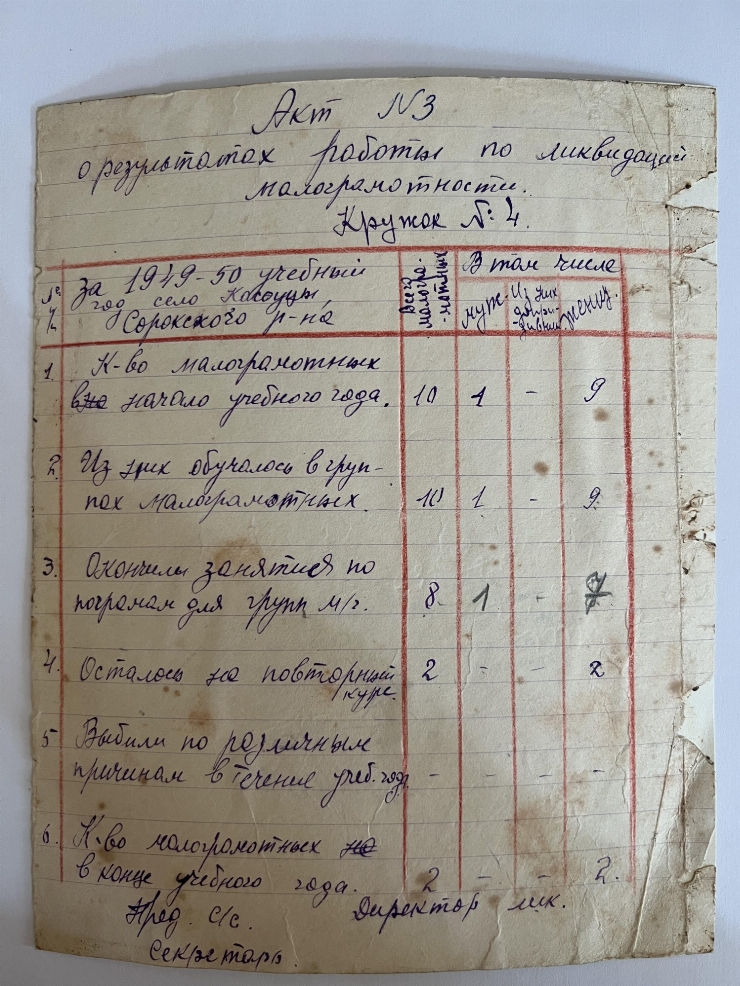 Акт N3
о результатах работы по ликвидации
малограмотности.
Кружок №: 4.
№
За 1949-50 учебный
год село Косоуцы
Сорокского р-на
Всего
малогра-
-мотных
В том числе
муж.
Из них
допри-
женщ.
1. К-во малограмотных
в на начало учебного года. 10 1 - 9
2. Из них обучалось в груп-
пах малограмотных. 10 1 - 9.
3. Окончили занятия по
пограмам для групп м/г. 8. 1 - 7
4. Осталось на повторный 2 - - 2
курс.
5 Выбили по различным
причинам в течение учеб. года - - - -
6. К-во малограмотных на
в конце учебного года. 2 - - 2.
Пред. с/с. Директор лик.
Секретарь.